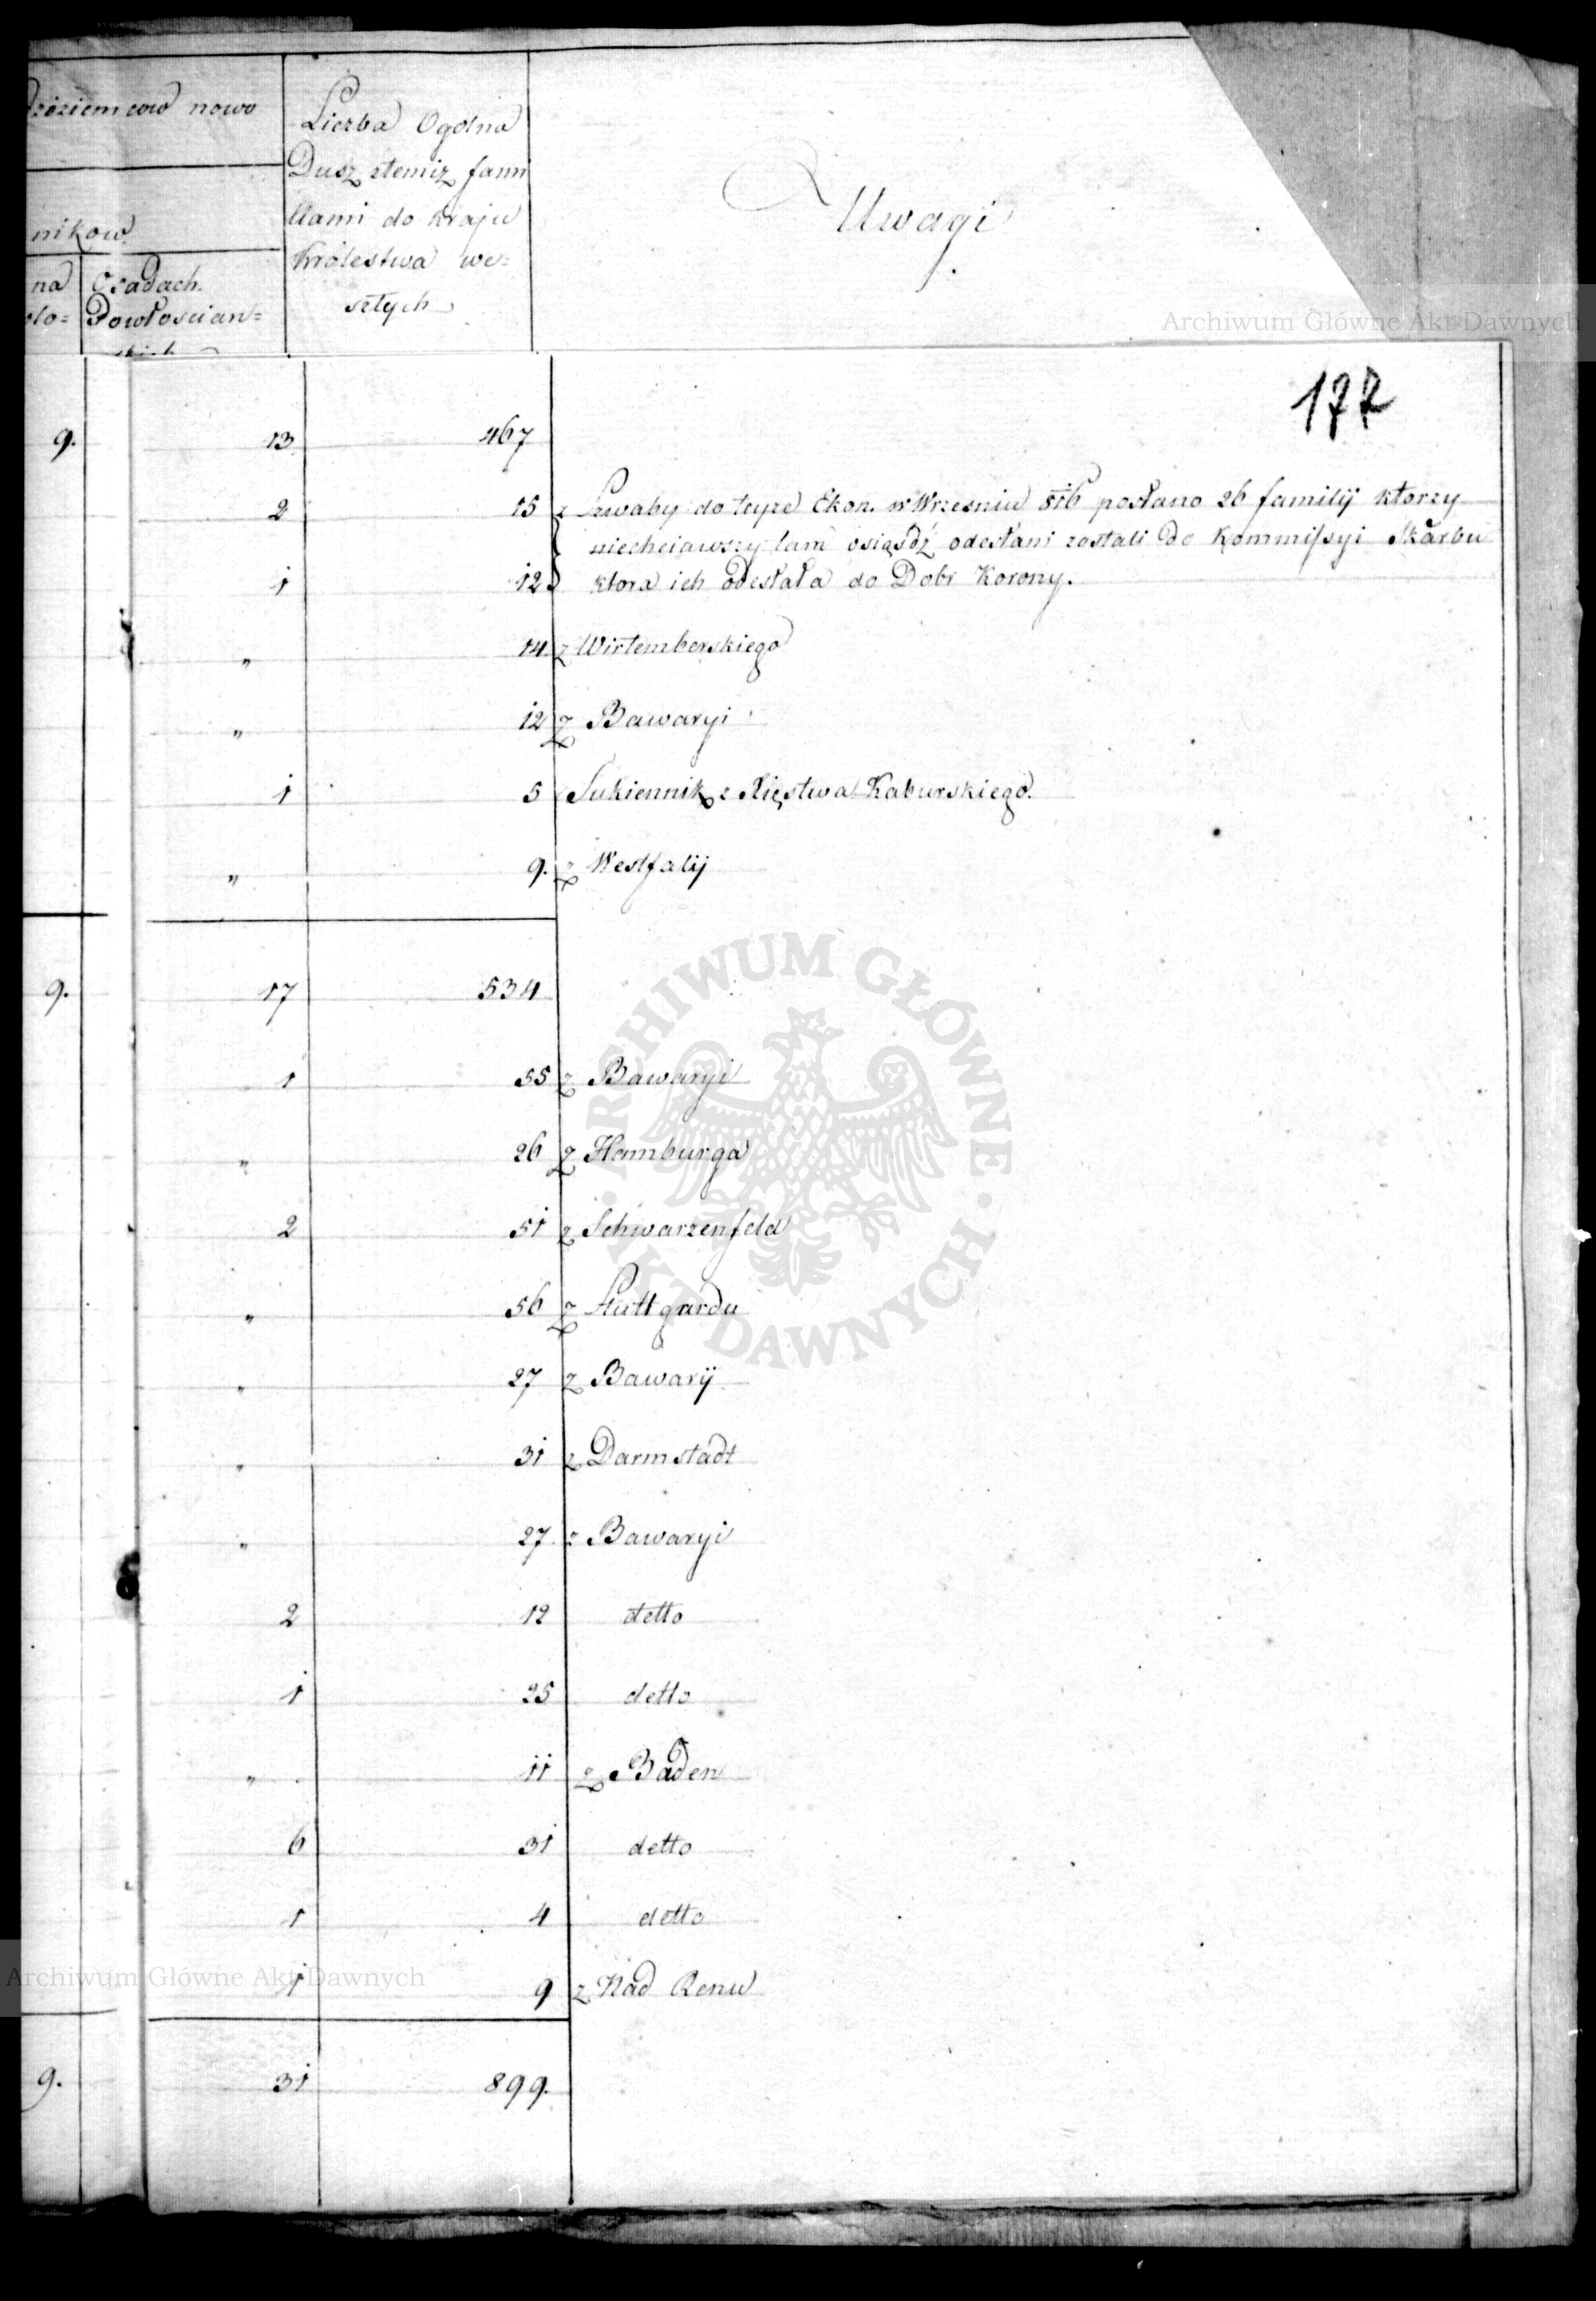 nowo
Liczba Ogolna
Dusz ztemiz fami
liami do kraju
Królestwa we=
szłych
Uwagi
nikow
na Osadach
Powłościan=
Archiwum Główne Akt Dawnych
177
9. 13 467
2 15 z Szwaby do teyze Ekon. w Wrzesniu 816 posłano 26 familij ktorzy
niechciawszy tam osiąsdź odesłani zostali do Kommissyi Skarbu
1 12 ktora ich odesłała do Dobr Korony.
" 14 z Wirtemberskiego
" 12 z Bawaryi
1 5 Sukiennik z Xięstwa Kaburskiego.
" 9. z Westfalij
9. 17 534
1 55 z Bawaryi
" 26 z Hamburga
2 51 z Schwarzenfeld
" 56 z Stuttgardu
" 27 z Bawarij
" 31 z Darmstadt
" 27 z Bawaryi
2 12 detto
1 25 detto
" 11 z Baden
6 31 detto
1 4 detto
1 9 z Nad Renu
9. 31 899.
ARCHIWUM GŁÓWNE AKT DAWNYCH
Archiwum Główne Akt Dawnych